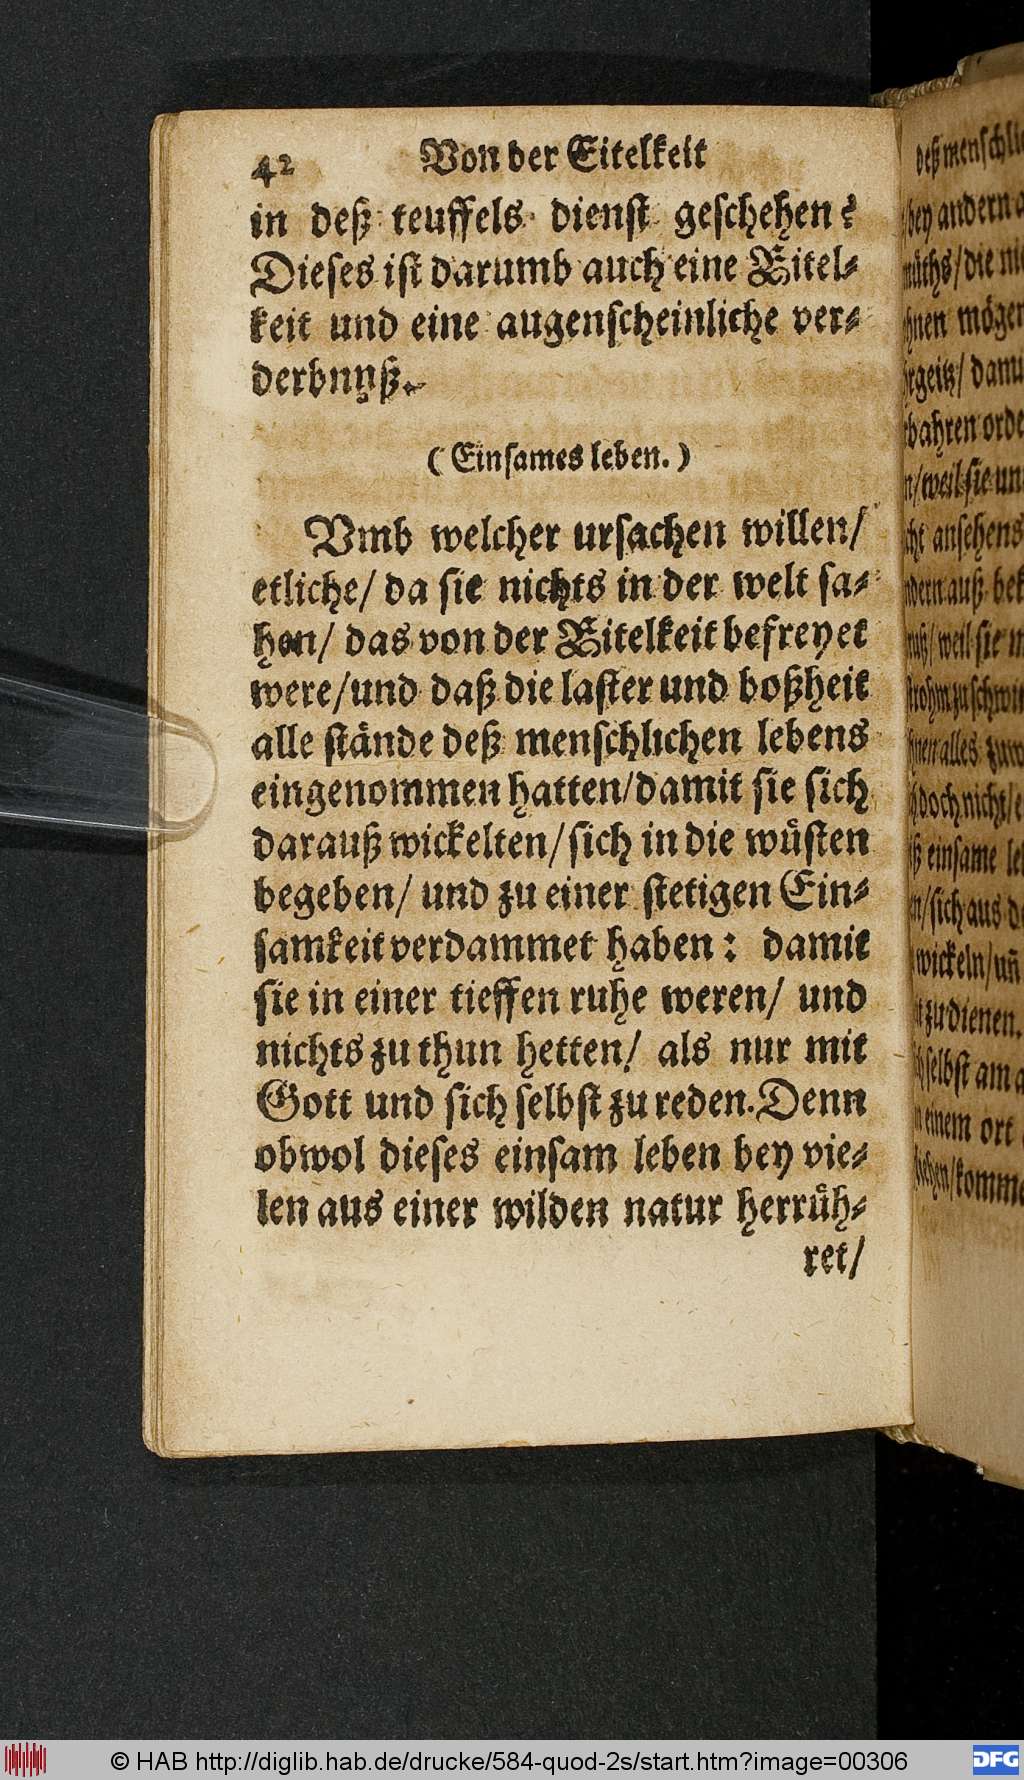 42 Von der Eitelkeit
in deß teuffels dienst geschehen?
Dieses ist darumb auch eine Eitel-
keit und eine augenscheinliche ver-
derbnyß.
(Einsames leben.)
Vmb welcher ursachen willen/
etliche/ da sie nichts in der welt sa-
hen/ das von der Eitelkeit befreyet
were/und daß die laster und boßheit
alle stände deß menschlichen lebens
eingenommen hatten/damit sie sich
darauß wickelten/sich in die wüsten
begeben/ und zu einer stetigen Ein-
samkeit verdammet haben: damit
sie in einer tieffen ruhe weren/ und
nichts zu thun hetten/ als nur mit
Gott und sich selbst zu reden. Denn
obwol dieses einsam leben bey vie-
len aus einer wilden natur herrüh-
ret/
deß menschli
bey andern
die
mögen
damit
orde
weil sie un
ansehens
auß
weil sie
alles
doch nicht/
einsame
sich aus
wickeln/ uñ
zu dienen.
selbst am
einem ort
komme
© HAB http://diglib.hab.de/drucke/584-quod-2s/start.htm?image=00306
DFG